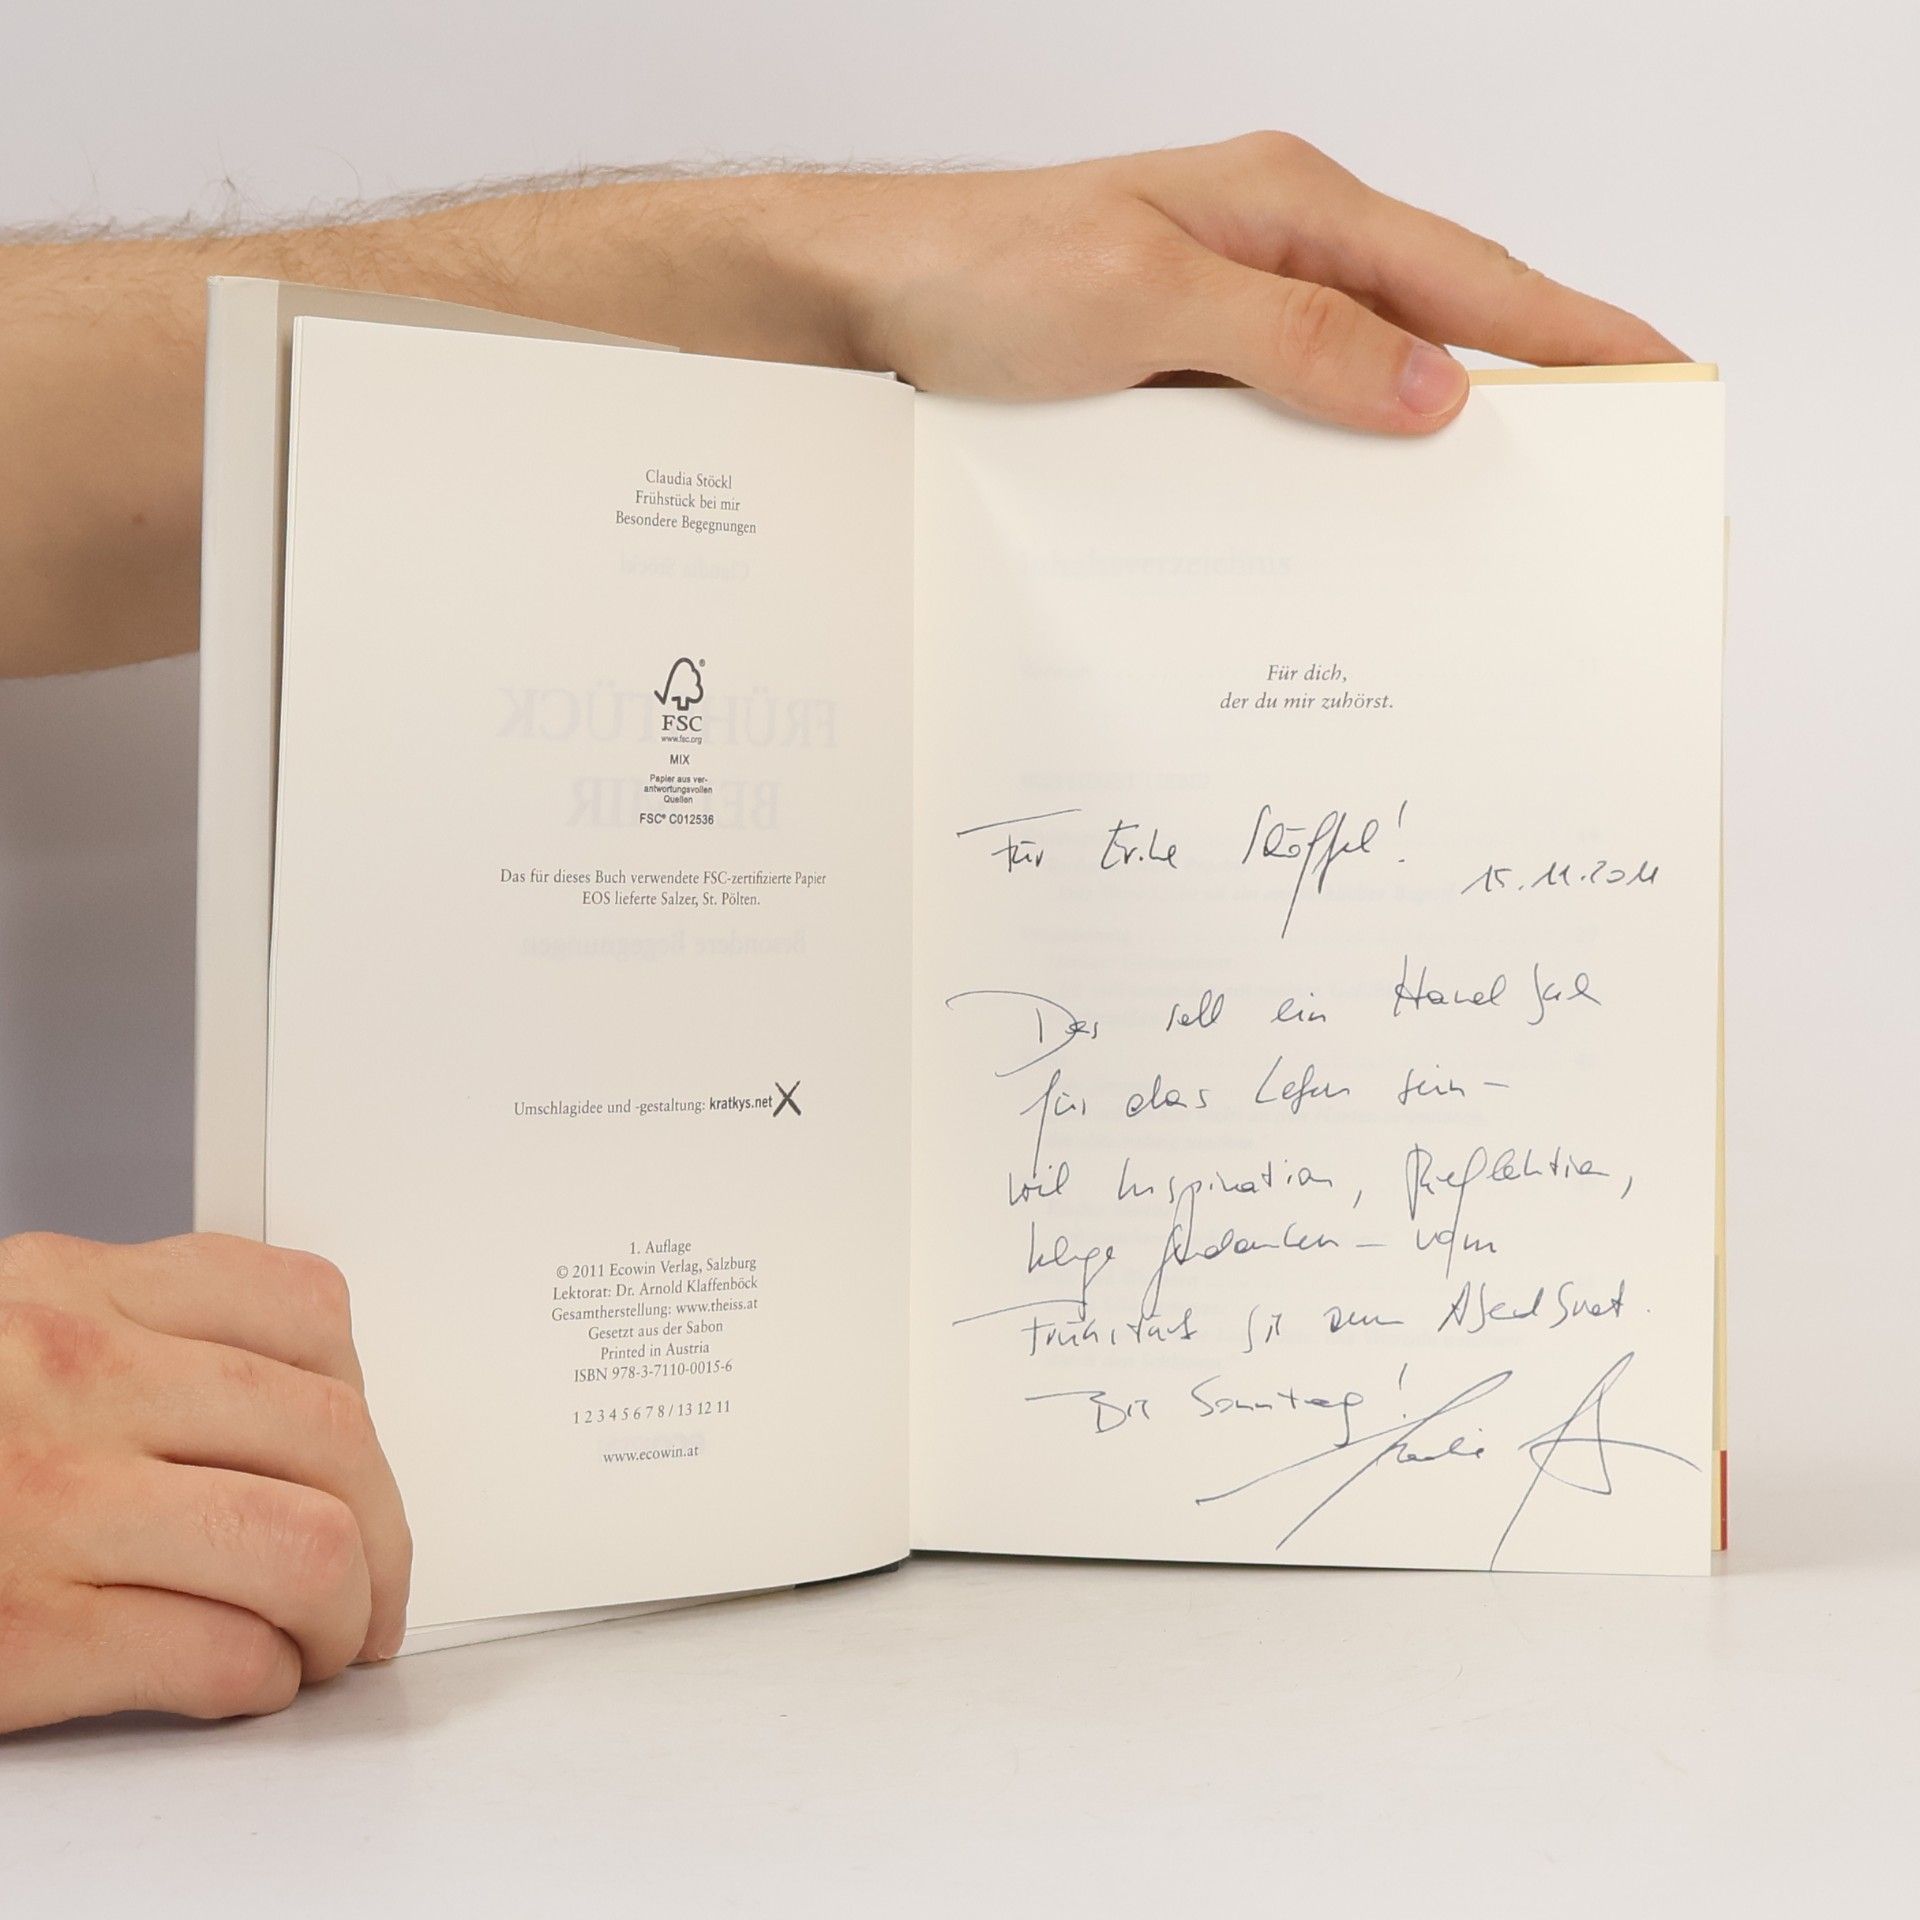 Claudia Stöckl
Frühstück bei mir
Besondere Begegnungen
FSC®
www.fsc.org
MIX
Papier aus ver-
antwortungsvollen
Quellen
FSC® C012536
Das für dieses Buch verwendete FSC-zertifizierte Papier
EOS lieferte Salzer, St. Pölten.
Umschlagidee und -gestaltung: kratkys.net
1. Auflage
© 2011 Ecowin Verlag, Salzburg
Lektorat: Dr. Arnold Klaffenböck
Gesamtherstellung: www.theiss.at
Gesetzt aus der Sabon
Printed in Austria
ISBN 978-3-7110-0015-6
1 2 3 4 5 6 7 8 / 13 12 11
www.ecowin.at
Für dich,
der du mir zuhörst.
Für Stöffel!
15.11.2011
Das soll ein
für das Leben sein –
viel Inspiration, Reflektion,
kluge Gedanken – vom
Frühstück bis zum
Bis Sonntag!
Claudia